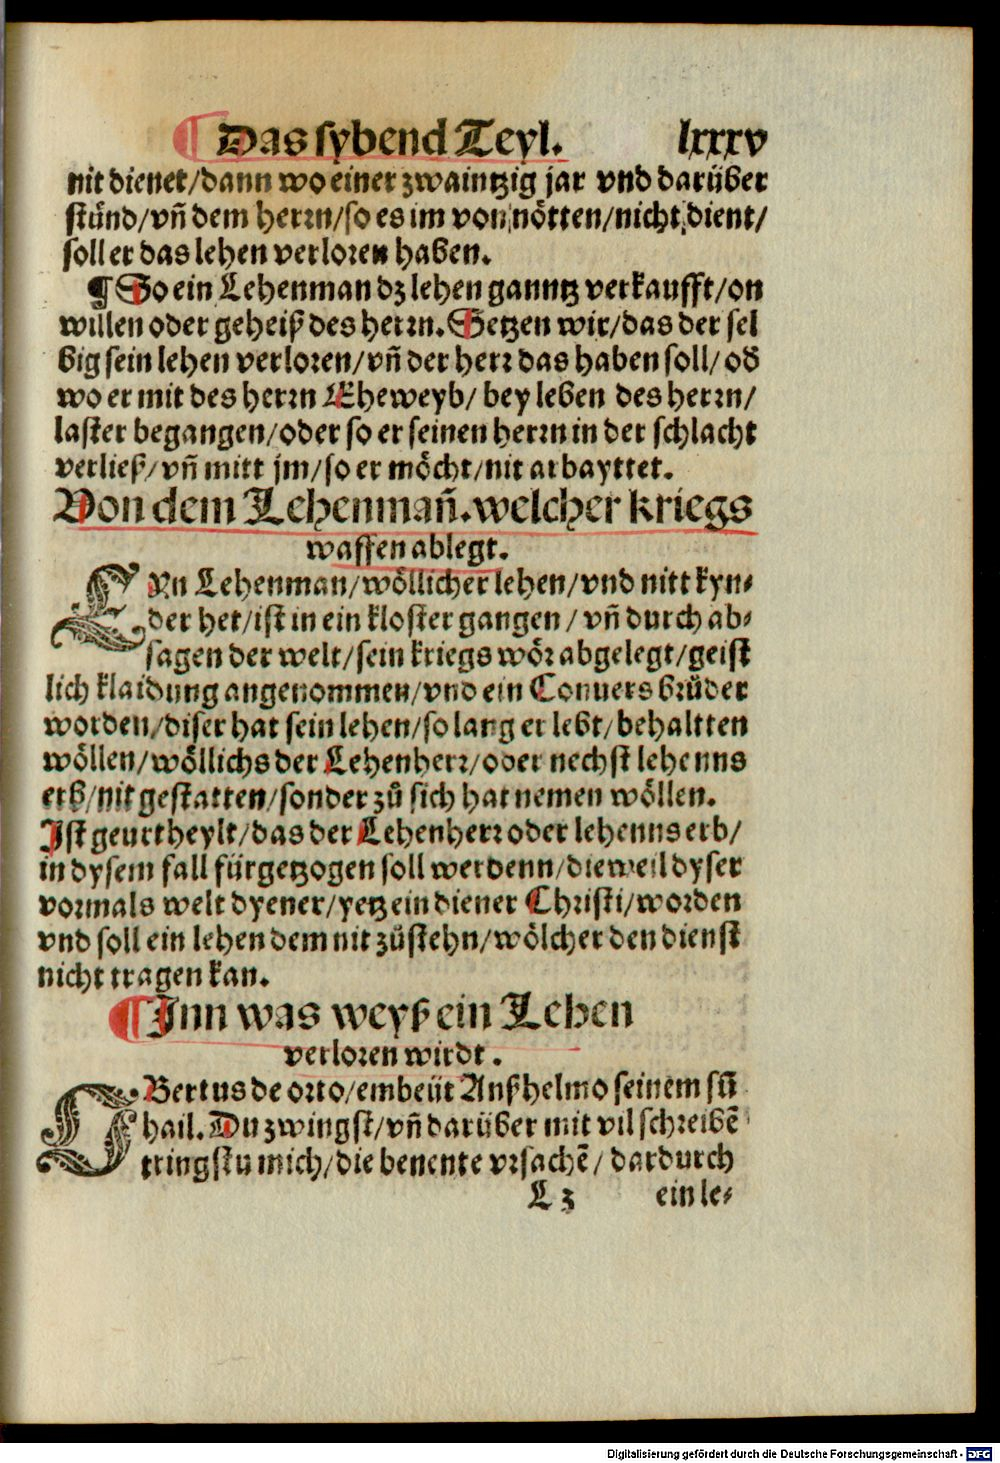 ¶ Das sybend Teyl. lxxxv
nit dienet/dann wo einer zwaintzig jar vnd darüber
stünd/vñ dem herrn/so es im von nötten/nicht dient/
soll er das lehen verloren haben.
¶ So ein Lehenman dz lehen ganntz verkaufft/on
willen oder geheiß des herrn. Setzen wir/das der sel
big sein lehen verloren/vñ der herr das haben soll/od̄
wo er mit des herrn Eheweyb/ bey leben des herrn/
laster begangen/oder so er seinen herrn in der schlacht
verließ/vñ mitt jm/so er möcht/nit arbayttet.
Von dem Lehenmañ. welcher kriegs
waffen ablegt.
EYn Lehenman/wöllicher lehen/vnd nitt kyn-
der het/ist in ein kloster gangen / vñ durch ab-
sagen der welt/sein kriegs wör abgelegt/geist
lich klaidung angenommen/vnd ein Conuers brůder
worden/diser hat sein lehen/so lang er lebt/behaltten
wöllen/wöllichs der Lehenherr/oder nechst lehenns
erb/nit gestatten/sonder zů sich hat nemen wöllen.
Ist geurtheylt/das der Lehenherr oder lehenns erb/
in dysem fall fürgetzogen soll werdenn/dieweil dyser
vormals welt dyener/yetz ein diener Christi/worden
vnd soll ein lehen dem nit zůstehn/wölcher den dienst
nicht tragen kan.
¶ Inn was weyß ein Lehen
verloren wirdt.
OBertus de orto/embeüt Anßhelmo seinem sũ
hail. Du zwingst/vñ darüber mit vil schreibẽ
tringstu mich/die benente vrsachẽ/ dardurch
L 3 ein le-
Digitalisierung gefördert durch die Deutsche Forschungsgemeinschaft - DFG